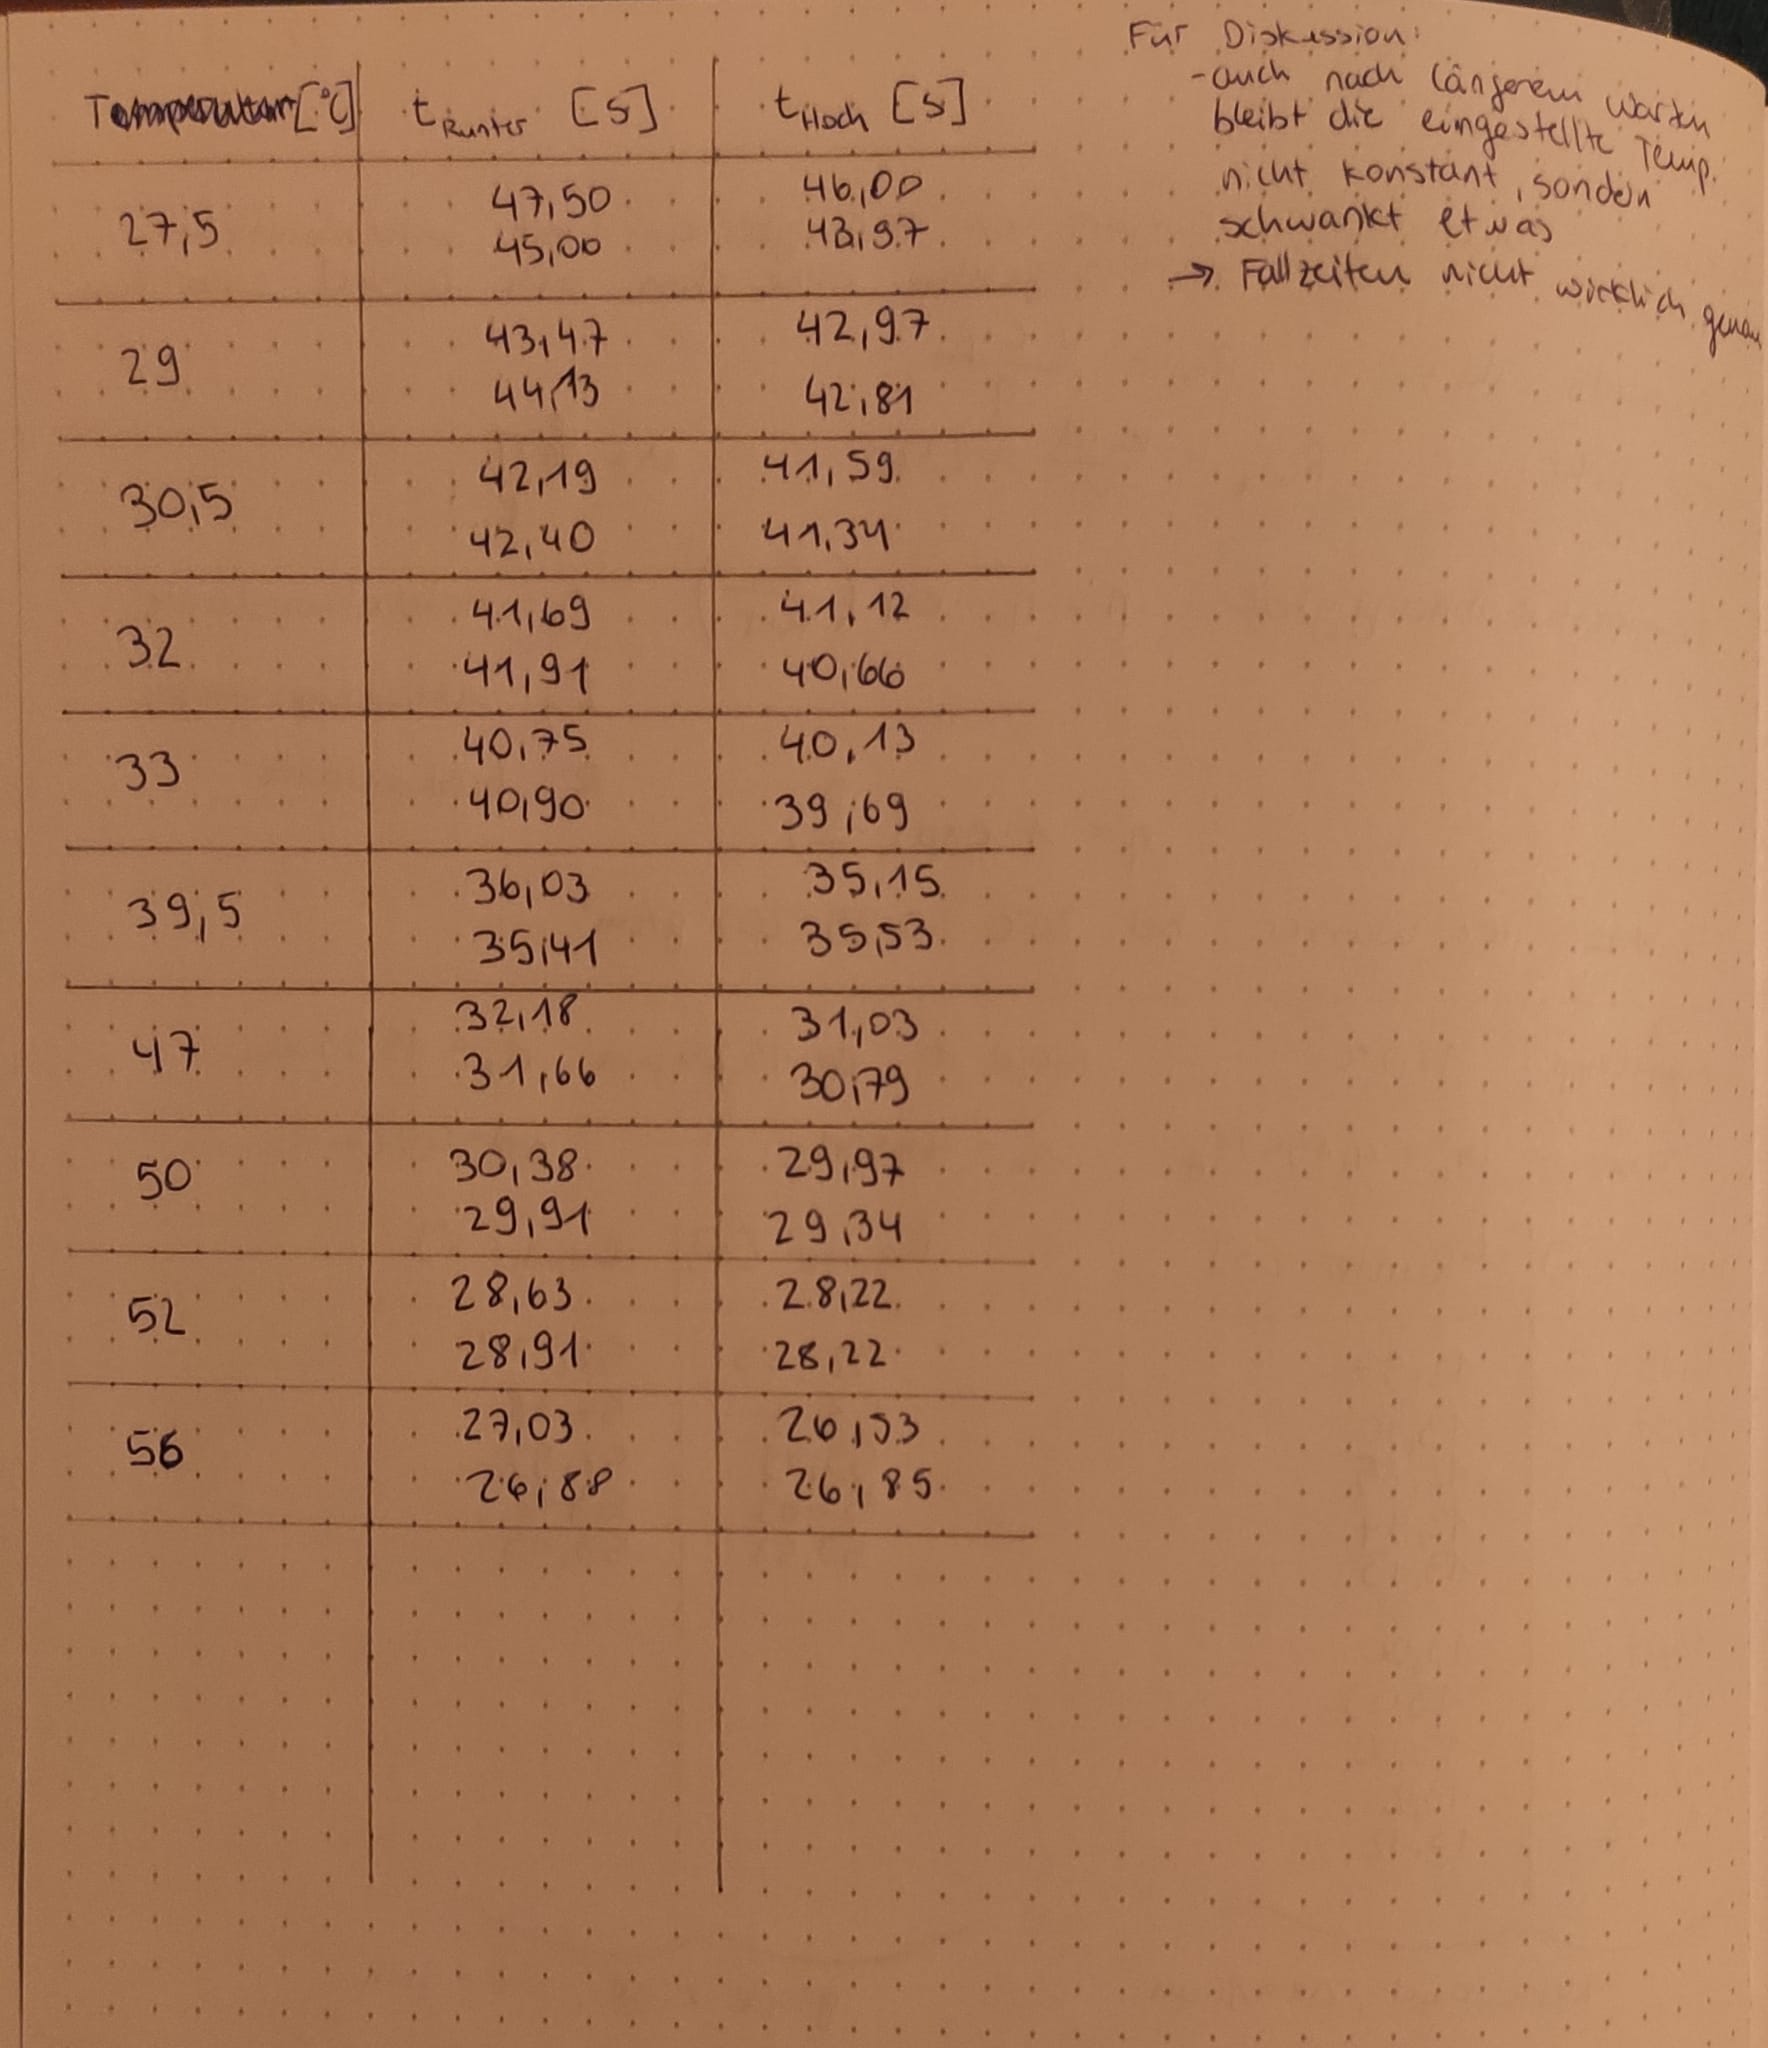 Temperatur [°C] t Runter [s] t Hoch [s]
27,5 47,50 46,00
45,00 43,97
29 43,47 42,97
44,13 42,81
30,5 42,19 41,59
42,40 41,34
32 41,69 41,12
41,91 40,66
33 40,75 40,13
40,90 39,69
39,5 36,03 35,15
35,41 35,53
47 32,18 31,03
31,66 30,79
50 30,38 29,97
29,91 29,34
52 28,63 28,22
28,91 28,22
56 27,03 26,53
26,88 26,85
Für Diskussion:
- auch nach längerem warten
bleibt die eingestellte Temp.
nicht konstant, sondern
schwankt etwas
→ Fallzeiten nicht wirklich genau